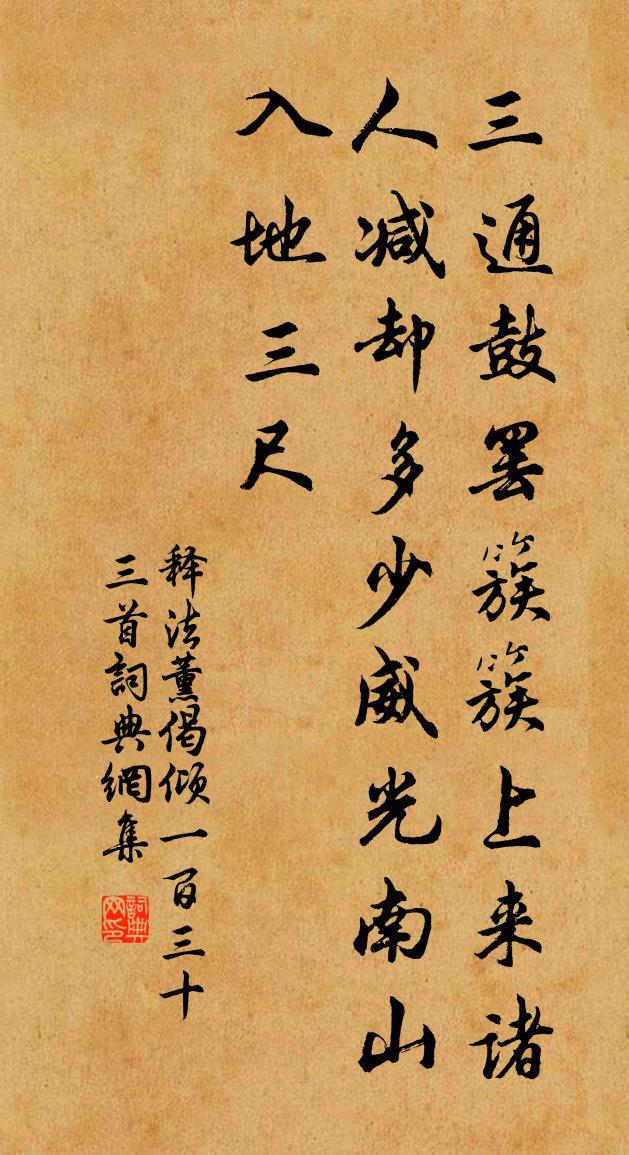 三通鼓罢簇簇上来诸
人减却多少威光南山
入地三尺
释法薰偈倾一百三十
三首詞典網集
詞典网印